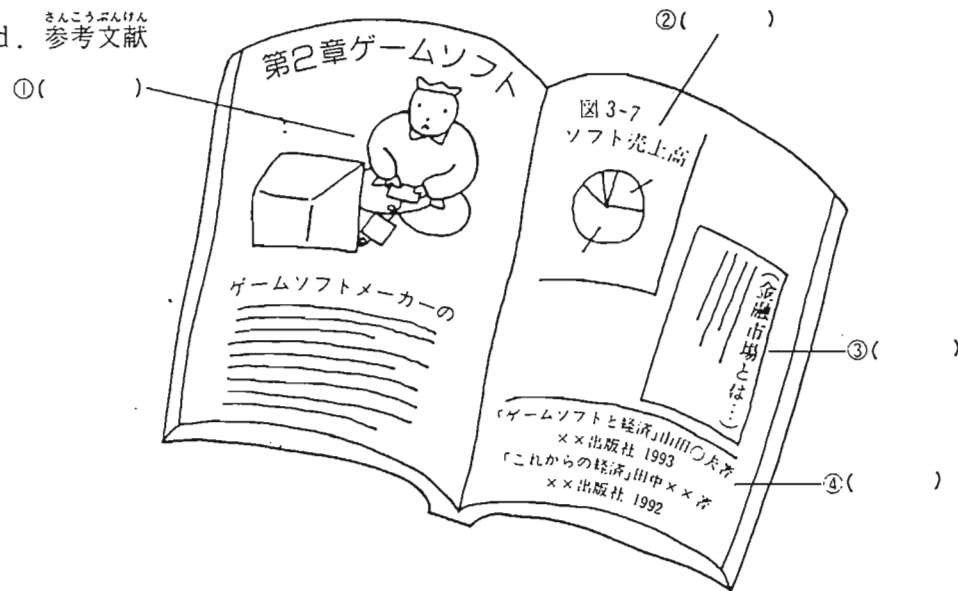 d. 参考文献
さんこうぶんけん
①( )
②( )
第2章ゲームソフト
ゲームソフトメーカーの
図3-7
ソフト売上高
(金融市場とは…)
③( )
「ゲームソフトと経済」山田〇夫著
××出版社 1993
「これからの経済」田中××著
××出版社 1992
④( )